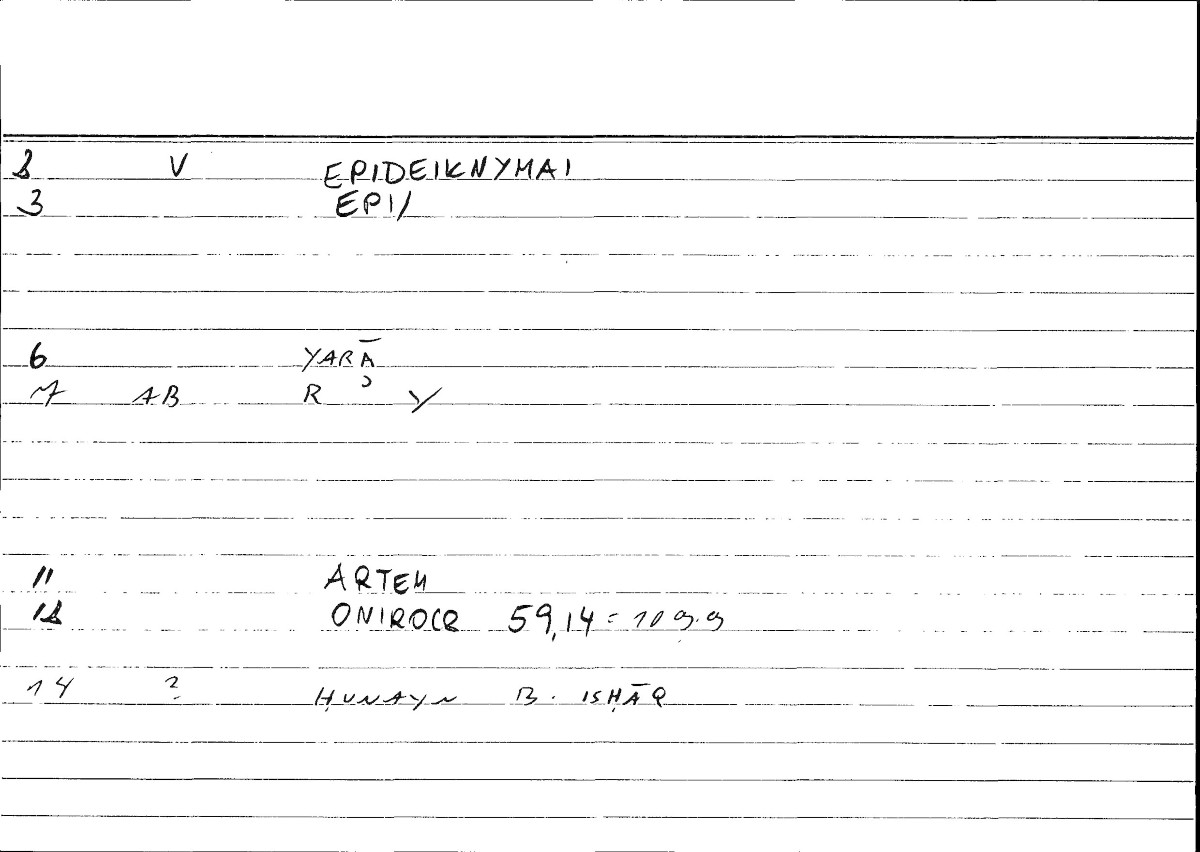 2 V EPIDEIKNYMAI
3 EPI/
6 YARĀ
7 AB R ʾ Y
11 ARTEM
12 ONIROCR 59,14 = 109.9
14 ? ḤUNAYN B. ISḤĀQ